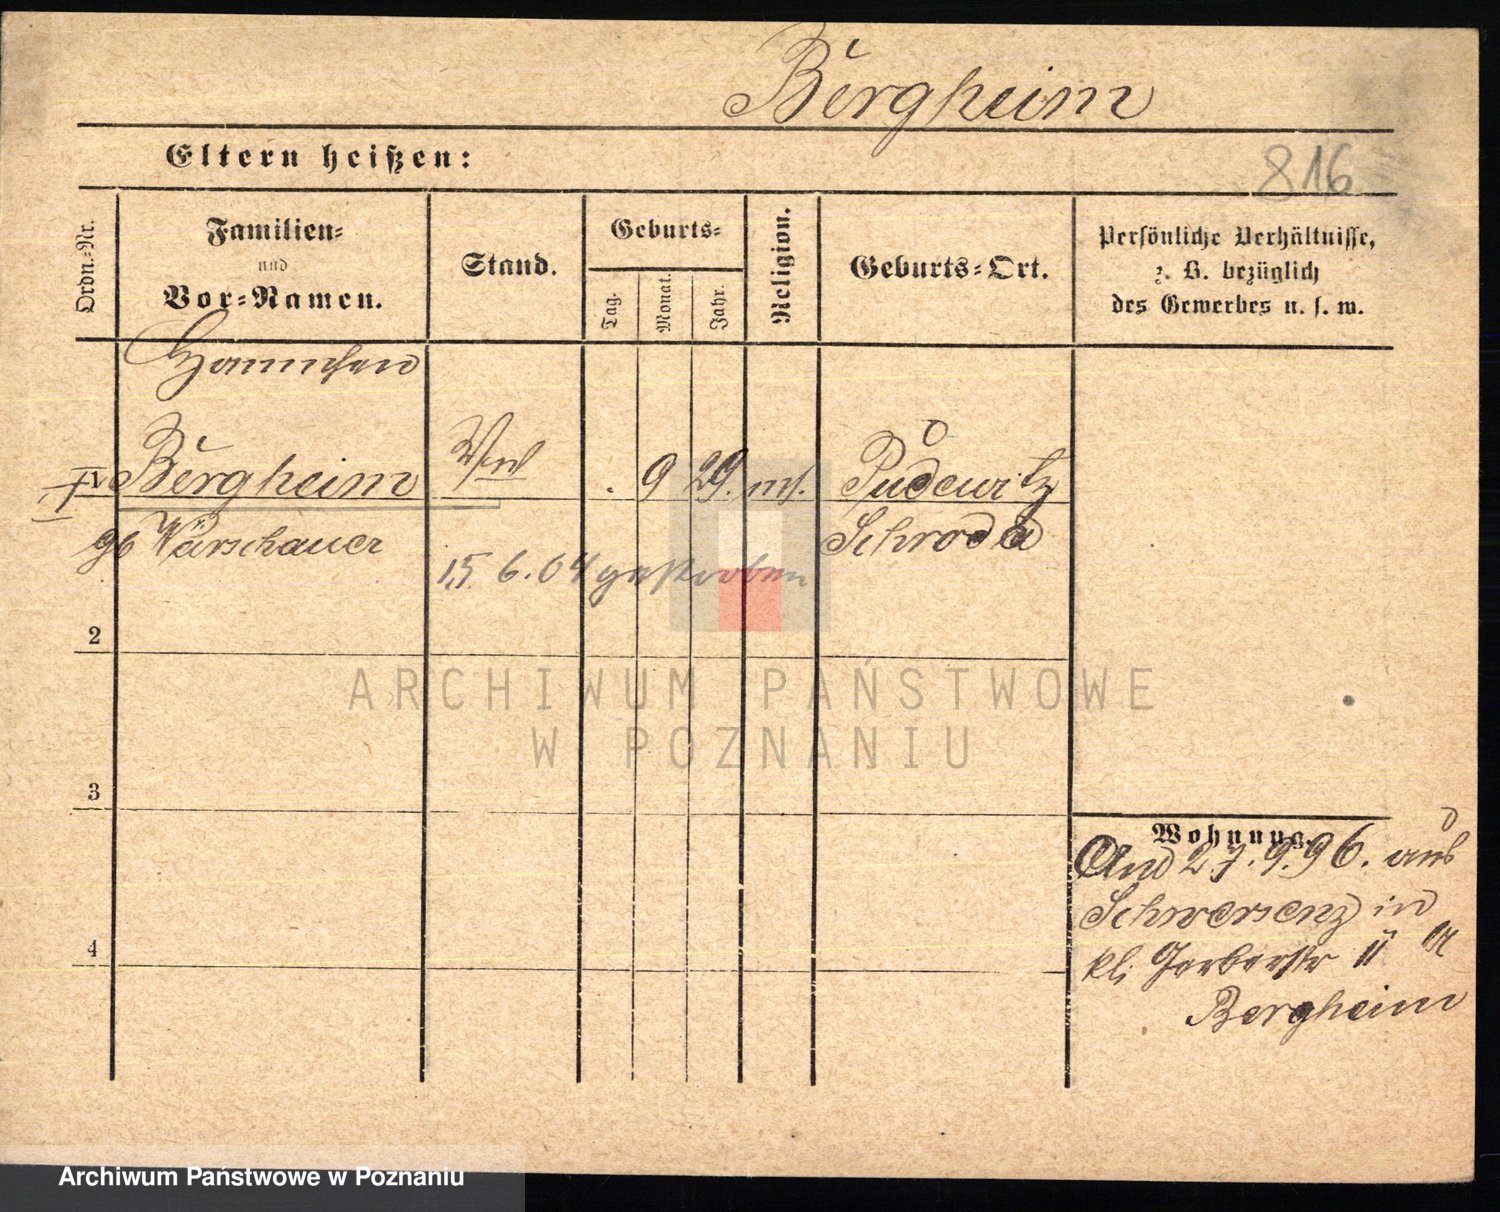 Bergheim
Eltern heißen:
816
Ordn.-Nr.
Familien-
und
Vor-Namen.
Stand.
Geburts-
Tag.
Monat.
Jahr.
Religion.
Geburts-Ort.
Persönliche Verhältnisse,
z. B. bezüglich
des Gewerbes u. s. w.
Hannchen
Bergheim
Ww
9 29. ms.
Pudewitz
gb Warschauer
Schroda
15. 6. 04 gestorben
2
3
4
Wohnung.
And 27. 9. 96. aus
Schwersenz in
kl. Gerberstr 11
Bergheim
ARCHIWUM PAŃSTWOWE
W POZNANIU
Archiwum Państwowe w Poznaniu